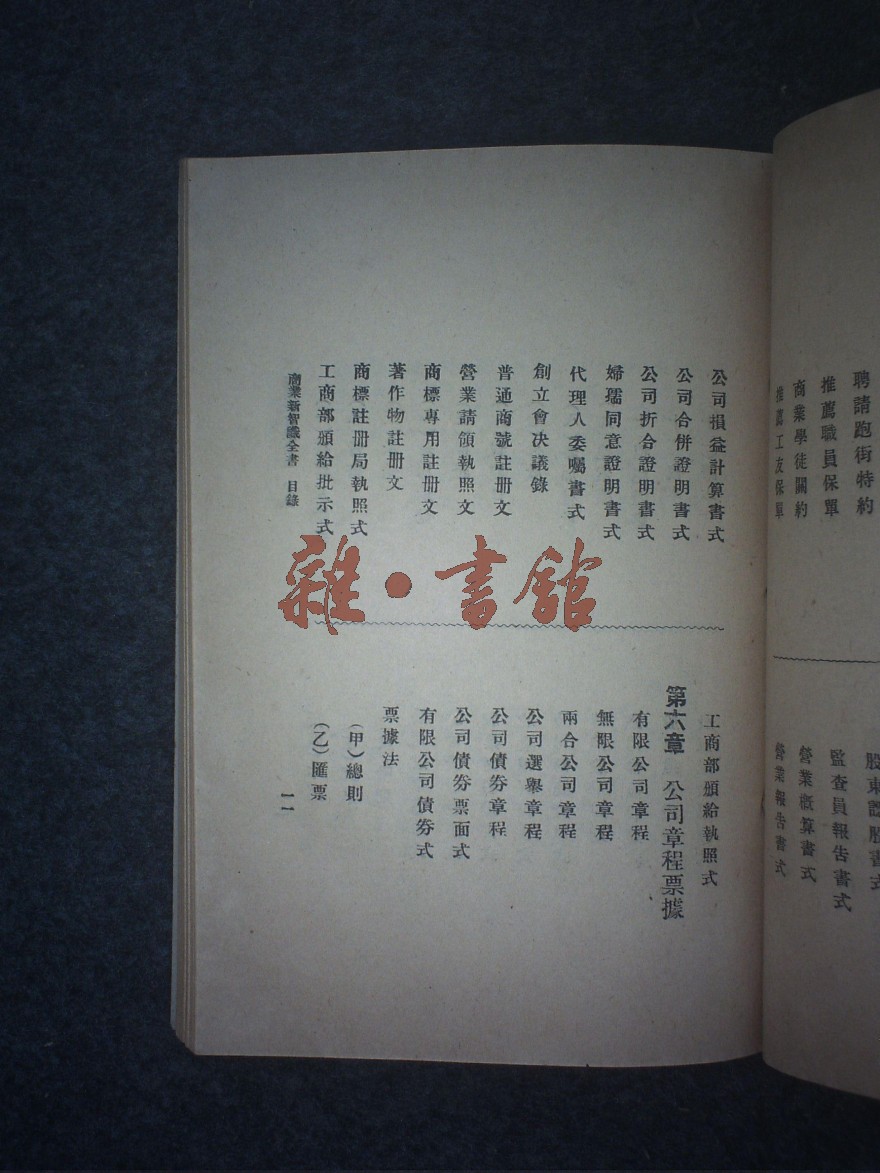 聘請跑街特約
推薦職員保單
商業學徒關約
推薦工友保單
股東認股書式
監查員報告書式
營業概算書式
營業報告書式
公司損益計算書式
公司合併證明書式
公司折合證明書式
婦孺同意證明書式
代理人委囑書式
創立會决議錄
普通商號註册文
營業請領執照文
商標專用註册文
著作物註册文
商標註册局執照式
工商部頒給批示式
工商部頒給執照式
第六章 公司章程票據
有限公司章程
無限公司章程
兩合公司章程
公司選舉章程
公司債券章程
公司債券票面式
有限公司債券式
票據法
(甲)總則
(乙)匯票
商業新智識全書 目錄
一一
雜·書館